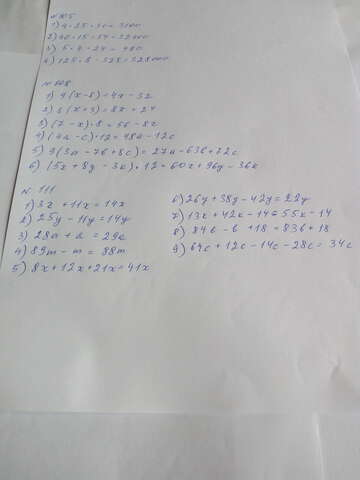 № 105
1) 4 · 25 · 31 = 3100
2) 40 · 15 · 54 = 32400
3) 5 · 4 · 24 = 480
4) 125 · 8 · 328 = 328000
№ 108
1) 4(x-8) = 4x - 32
2) 8(x+3) = 8x + 24
3) (7-x) · 8 = 56 - 8x
4) (4a - c) · 12 = 48a - 12c
5) 9(3a - 7b + 8c) = 27a - 63b + 72c
6) (5x + 8y - 3k) · 12 = 60x + 96y - 36k
№ 111
1) 3x + 11x = 14x
2) 25y - 11y = 14y
3) 28a + a = 29a
4) 89m - m = 88m
5) 8x + 12x + 21x = 41x
6) 26y + 38y - 42y = 22y
7) 13x + 42x - 14 = 55x - 14
8) 84b - b + 18 = 83b + 18
9) 64c + 12c - 14c - 28c = 34c